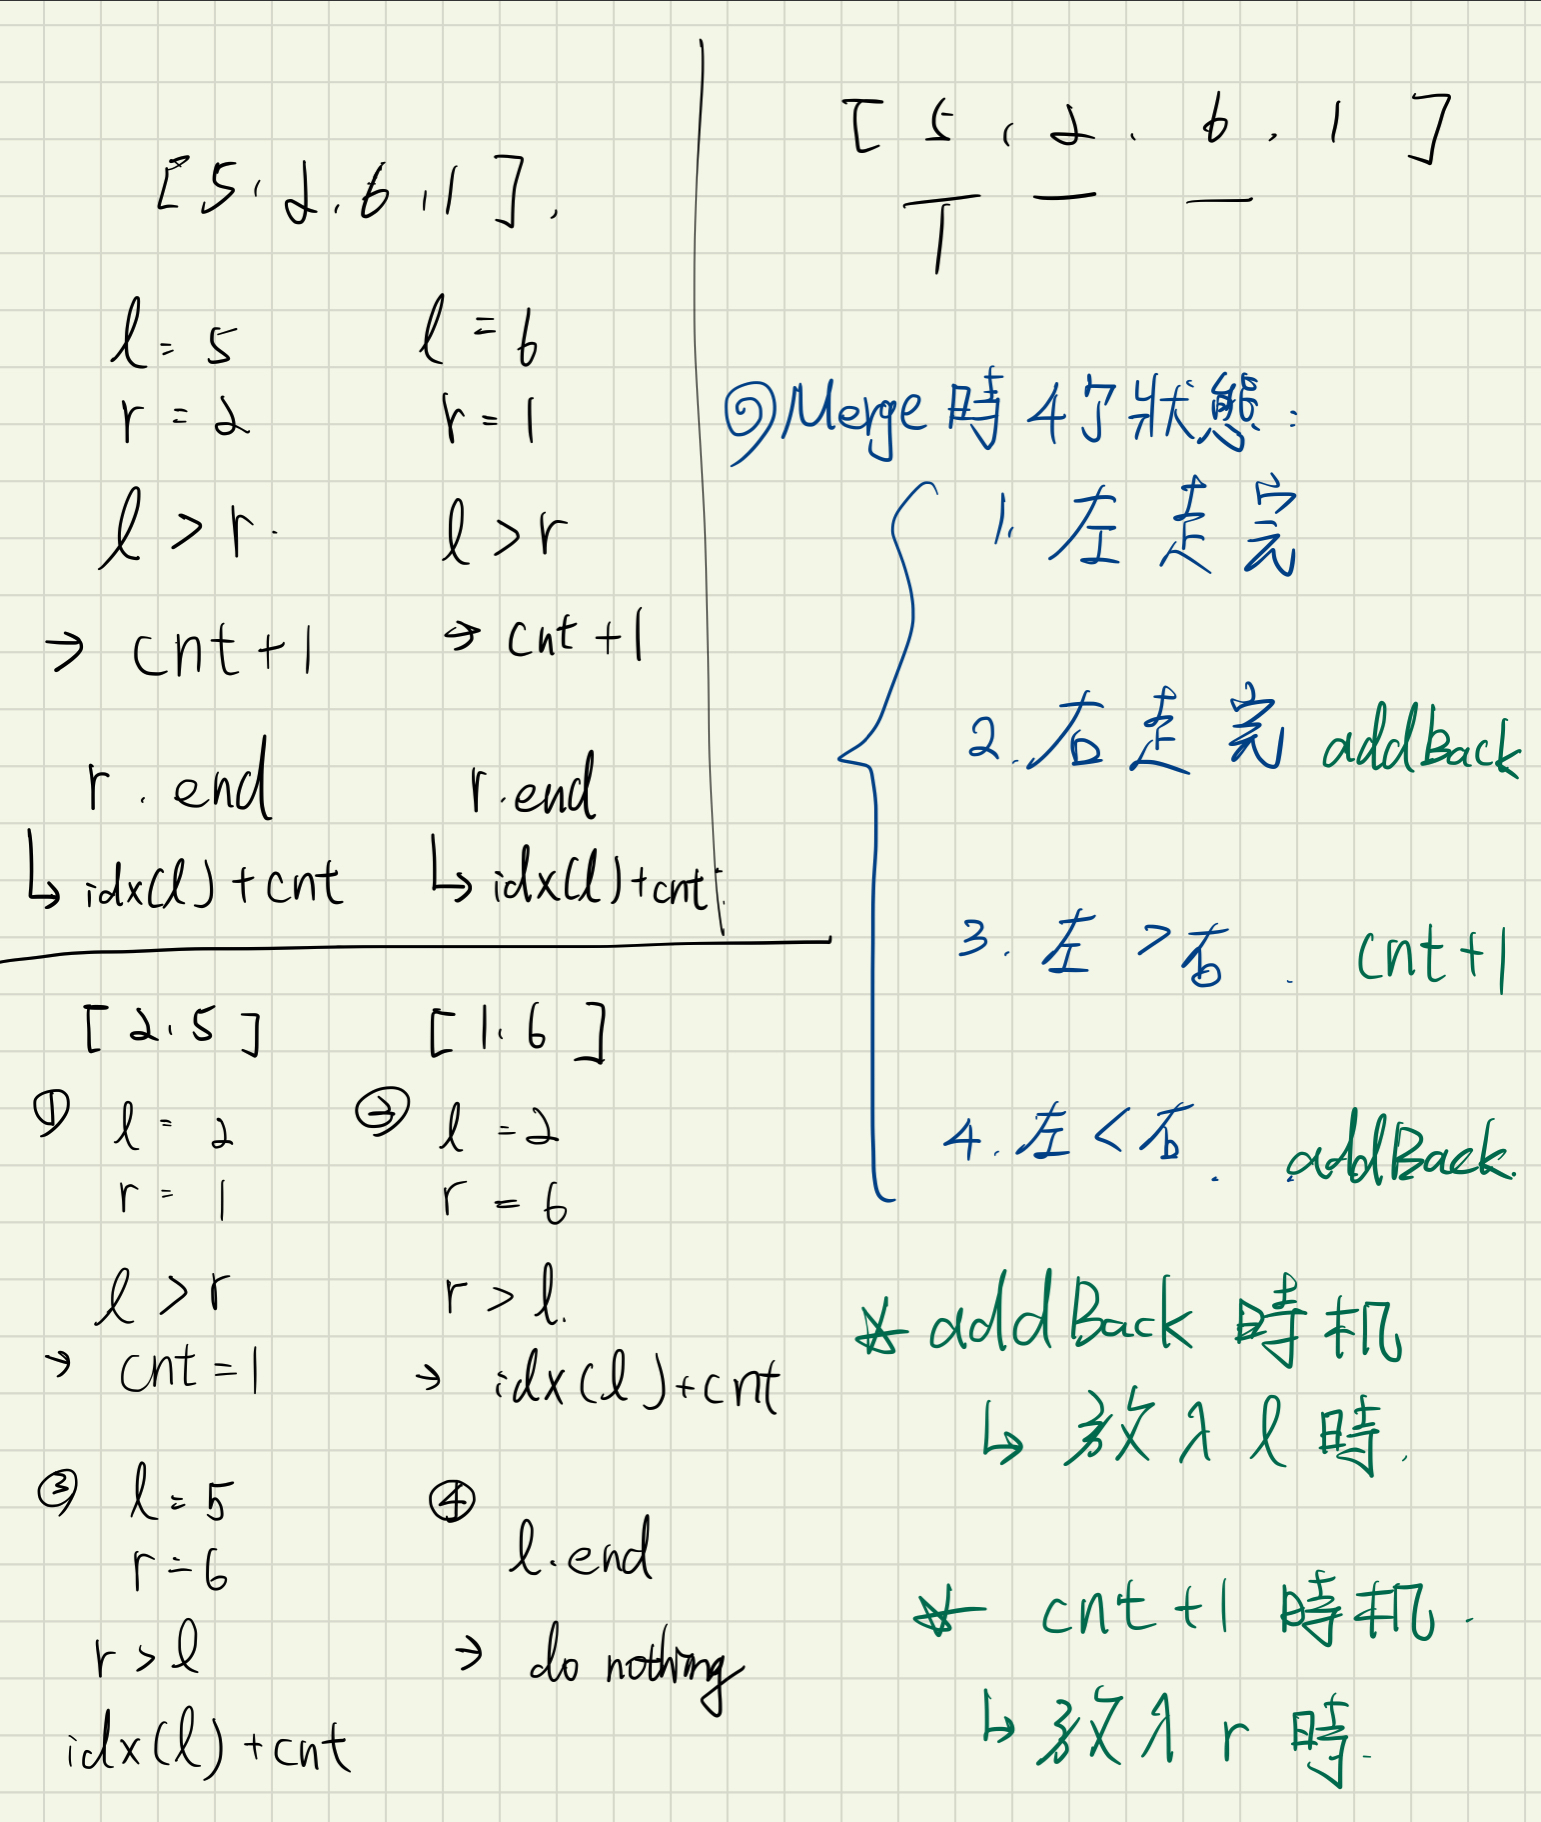 [5,2,6,1].
l=5
r=2
l>r.
→ cnt+1
r.end
↳ idx(l)+cnt
l=6
r=1
l>r
→ cnt+1
r.end
↳ idx(l)+cnt.
[2,5] [1,6]
① l=2
r=1
l>r
→ cnt=1
② l=2
r=6
r>l.
→ idx(l)+cnt
③ l=5
r=6
r>l
idx(l)+cnt
④
l.end
→ do nothing
[5,2,6,1]
Merge時4个狀態:
1. 左走完
2. 右走完 addBack
3. 左>右. cnt+1
4. 左<右. addBack.
☆ addBack 時机
↳ 放入 l 時.
☆ cnt+1 時机.
↳ 放入 r 時.